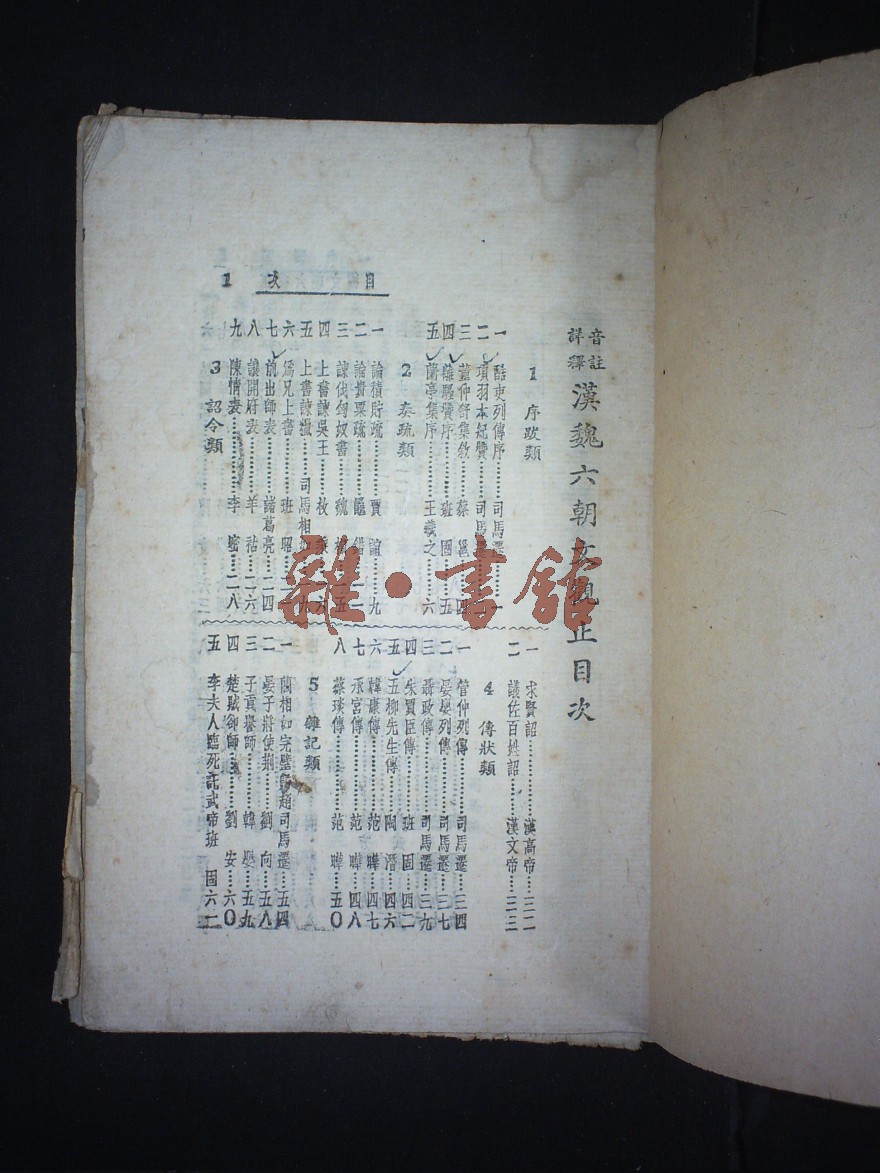 音註
詳釋
漢魏六朝文觀止目次
目次 1
1 序跋類
一 酷吏列傳序……司馬遷……一
二 項羽本紀贊……司馬遷
三 董仲舒集敘……蔡邕……四
四 離騷贊序……班固……五
五 蘭亭集序……王羲之……六
2 奏疏類
一 論積貯疏……賈誼……九
二 論貴粟疏……鼂錯
三 諫伐匈奴書
四 上書諫吳王……枚乘
五 上書諫獵……司馬相如
六 爲兄上書……班昭
七 前出師表……諸葛亮……二四
八 讓開府表……羊祜……二六
九 陳情表……李密……二八
3 詔令類
一 求賢詔……漢高帝……三二
二 議佐百姓詔……漢文帝……三三
4 傳狀類
一 管仲列傳……司馬遷……三四
二 晏嬰列傳……司馬遷……三七
三 聶政傳……司馬遷……三九
四 朱買臣傳……班固……四二
五 五柳先生傳……陶潛……四六
六 韓康傳……范曄……四七
七 承宮傳……范曄……四八
八 蔡琰傳……范曄……五〇
5 雜記類
一 藺相如完璧歸趙 司馬遷……五四
二 晏子將使荆……劉向……五八
三 子貢譽師……韓嬰……五九
四 楚賊卻師……劉安……六〇
五 李夫人臨死託武帝 班固 六二
雜·書館